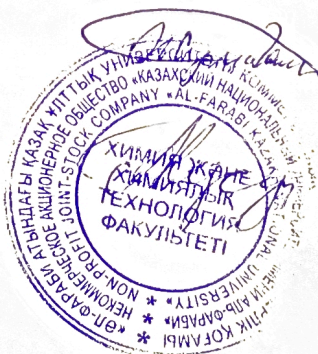 «ӘЛ-ФАРАБИ АТЫНДАҒЫ ҚАЗАҚ ҰЛТТЫҚ УНИВЕРСИТЕТІ» КОММЕ
РЛІК ҚОҒАМЫ
НЕКОММЕРЧЕСКОЕ АКЦИОНЕРНОЕ ОБЩЕСТВО «КАЗАХСКИЙ НАЦИОНАЛЬНЫЙ
ИМЕНИ АЛЬ-ФАРАБИ»
NON-PROFIT JOINT-STOCK COMPANY «AL-FARABI KAZAKH NATIONAL UNIVERSITY»
ХИМИЯ ЖӘНЕ
ХИМИЯЛЫҚ
ТЕХНОЛОГИЯ
ФАКУЛЬТЕТІ